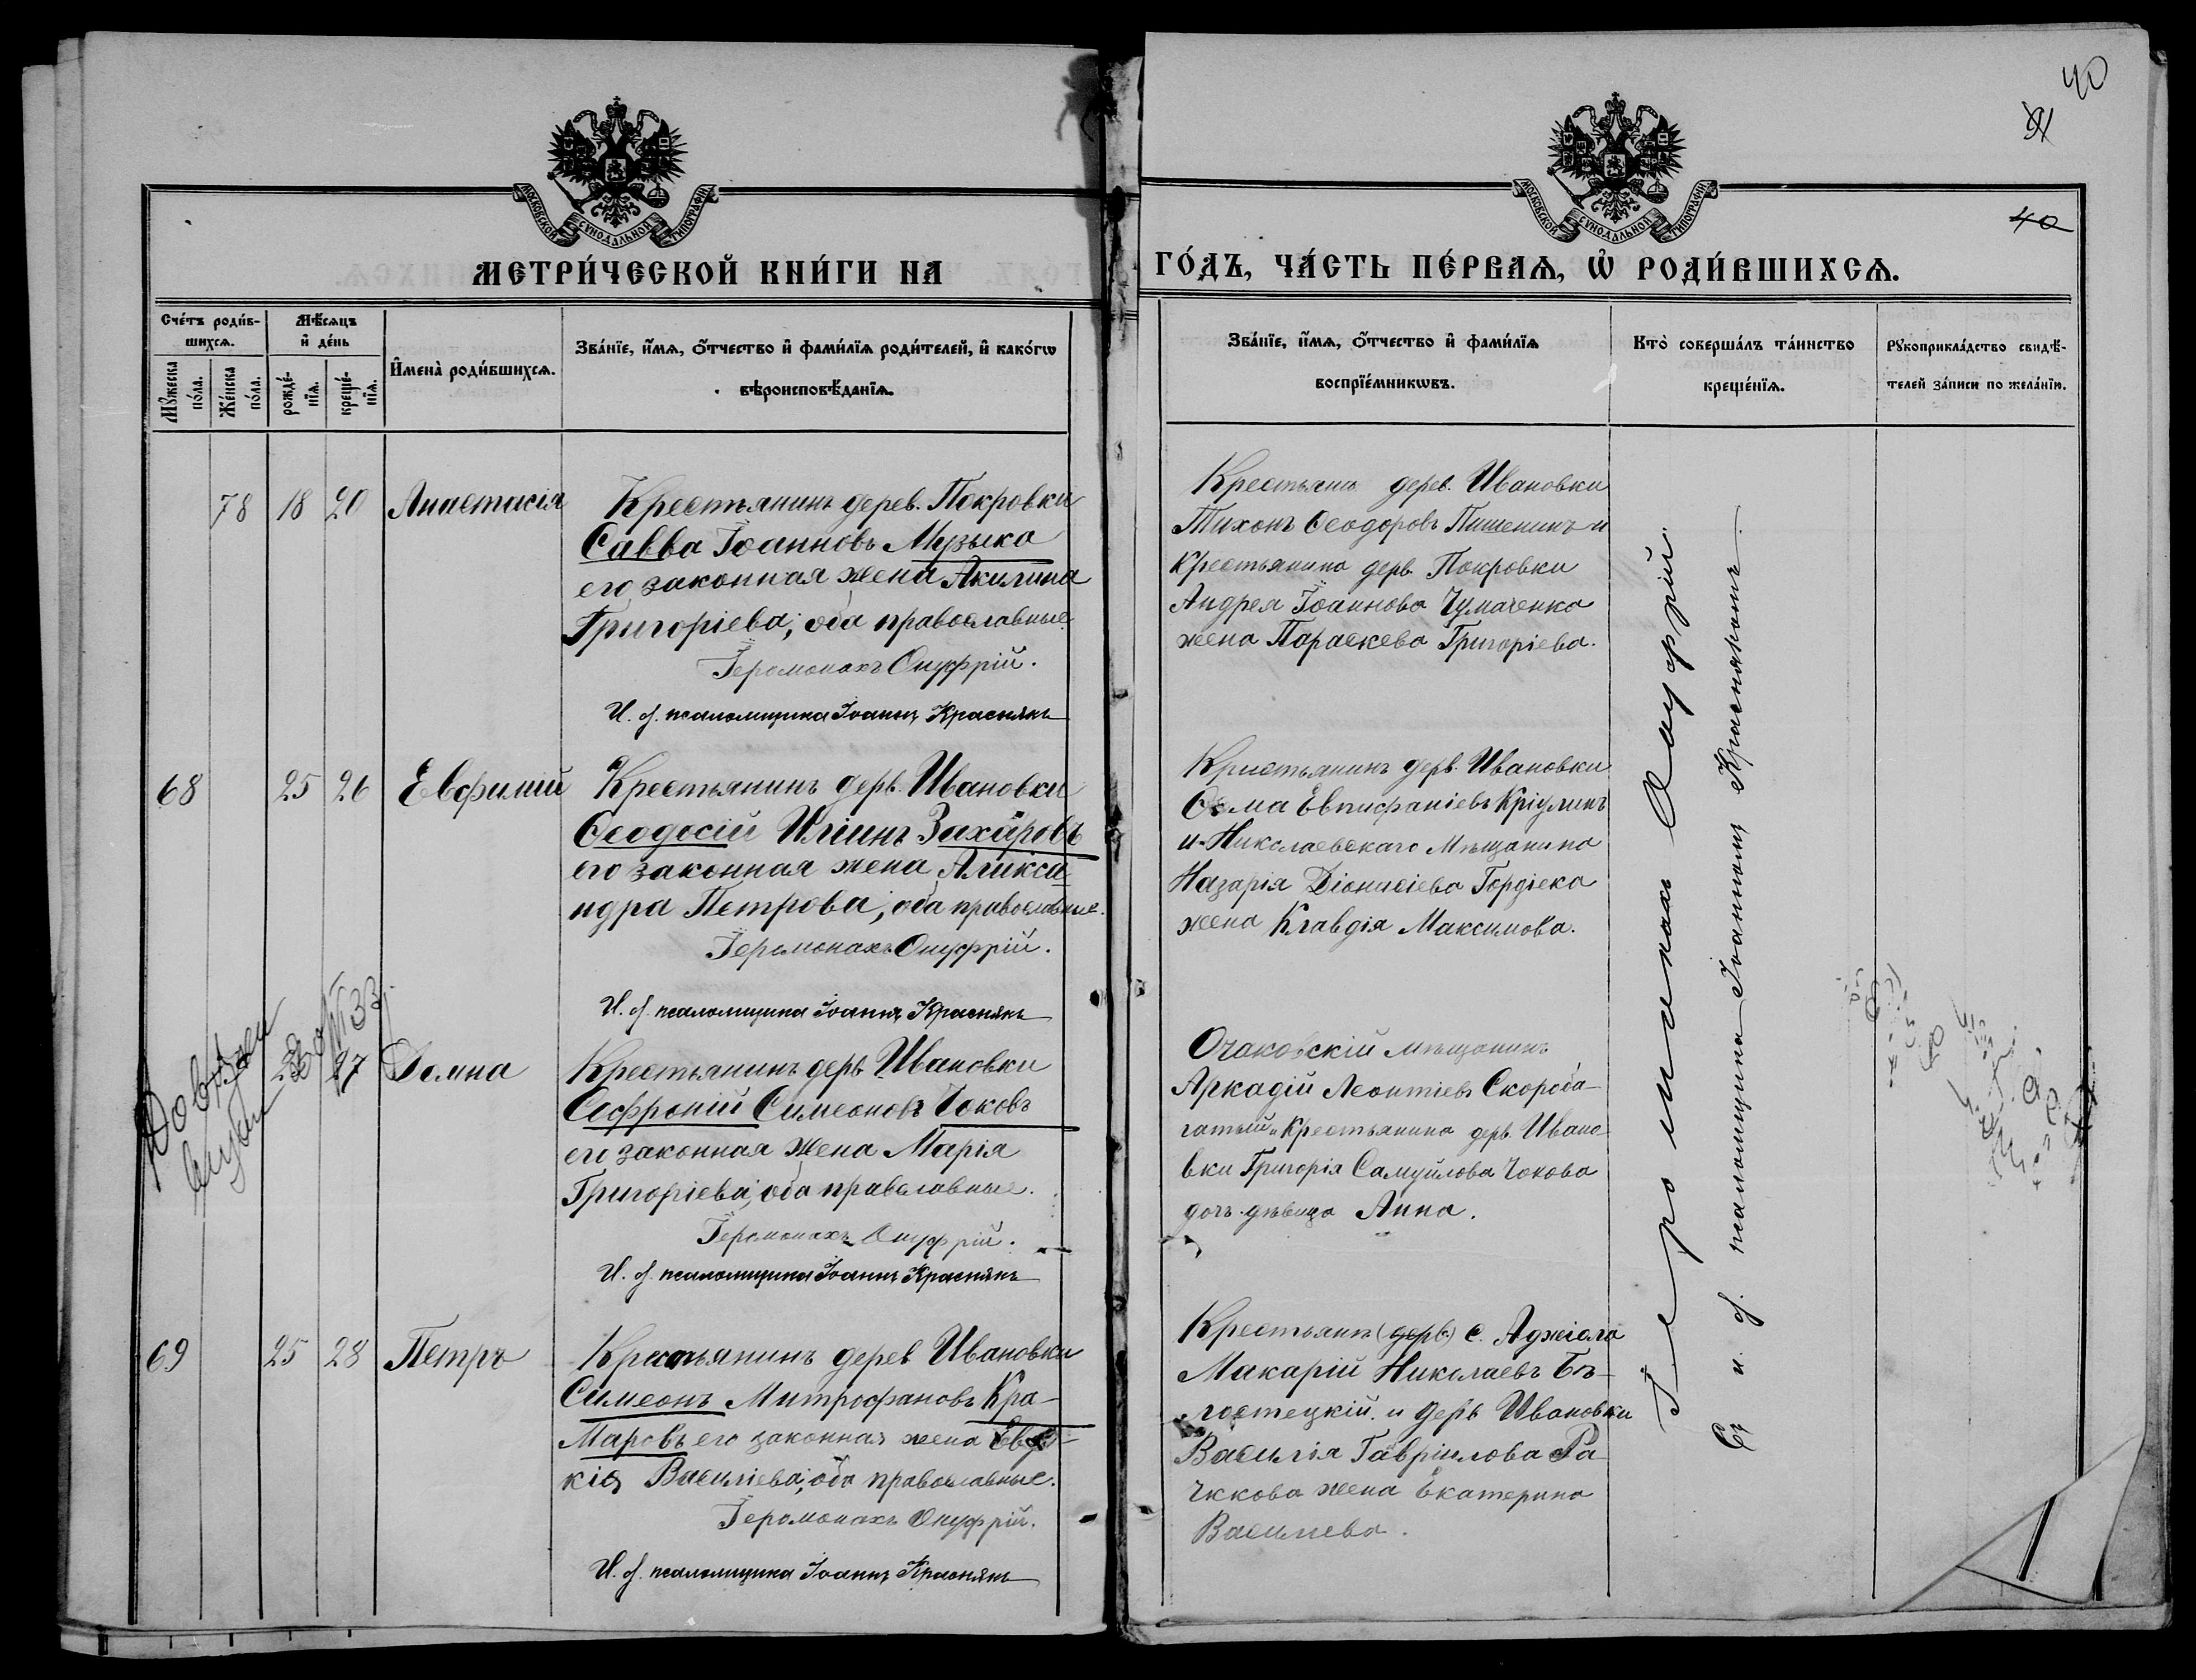 40
40
МОСКОВСКОЙ СѴНОДАЛЬНОЙ ТИПОГРАФІИ
МЕТРИ́ЧЕСКОЙ КНИ́ГИ НА
Сче́тъ роди́в-
шихсѧ.
Мѣ́сѧцъ
и҆ де́нь
Мꙋ́жеска по́ла.
Же́нска по́ла.
рожде́-
нїѧ.
креще́-
нїѧ.
И҆мена̀ роди́вшихсѧ.
Зва́нїе, и҆́мѧ, ѻ҆́тчество и҆ фами́лїѧ роди́телей, и҆ како́гѡ
вѣроисповѣ́данїѧ.
78 18 20 Анастасія
Крестьянинъ дерев. Покровки
Савва Іоанновъ Музыка
его законная жена Акилина
Григоріева, оба православные
Іеромонахъ Онуфрій.
И. д. псаломщика Іоаннъ Краснякъ
68 25 26 Евфимій
Крестьянинъ дерв. Ивановки
Ѳеодосій Иліинъ Захаровъ
его законная жена Алекса
ндра Петрова, оба православные.
Іеромонахъ Онуфрій.
И. д. псаломщика Іоаннъ Краснякъ
27 Домна
Крестьянинъ дерв. Ивановки
Софроній Симеоновъ Чоковъ
его законная жена Марія
Григоріева, оба православные.
Іеромонахъ Онуфрій.
И. д. псаломщика Іоаннъ Краснякъ
69 25 28 Петръ
Крестьянинъ дерев Ивановки
Симеонъ Митрофановъ Кра-
маровъ его законная жена Евдо-
кія Василіева, оба православные.
Іеромонахъ Онуфрій.
И. д. псаломщика Іоаннъ Краснякъ
МОСКОВСКОЙ СѴНОДАЛЬНОЙ ТИПОГРАФІИ
ГО́ДЪ, ЧА́СТЬ ПЕ́РВАѦ, Ѡ҆ РОДИ́ВШИХСѦ.
Зва́нїе, и҆́мѧ, ѻ҆́тчество и҆ фами́лїѧ
воспрїе́мникѡвъ.
Кто̀ соверша́лъ та́инство
креще́нїѧ.
Рꙋкоприкла́дство свидѣ́-
телей за́писи по жела́нїю.
Крестьянъ дерев. Ивановки
Тихонъ Ѳеодоровъ Пишенинъ и
крестьянина дерв. Покровки
Андрея Іоаннова Чумаченка
жена Параскева Григоріева.
Крестьянинъ дерв. Ивановки
Ѳома Евпифаніевъ Кріулинъ
и Николаевскаго мѣщанина
Назарія Діонисіева Гордіека
жена Клавдія Максимова.
Очаковскій мѣщанинъ
Аркадій Леонтіевъ Скороба-
гатый и крестьянина дерв. Ивано-
вки Григорія Самуйлова Чокова
дочь дѣвица Анна.
Крестьянъ (дерв.) с. Аджіола
Макарій Николаевъ Бѣ-
лостецкій. и дерв Ивановки
Василія Гавріилова Ра
чкова жена Екатерина
Василіева.
Іеромонахъ Онуфрій.
Съ и. д. псаломщика Іоанномъ Краснякомъ.